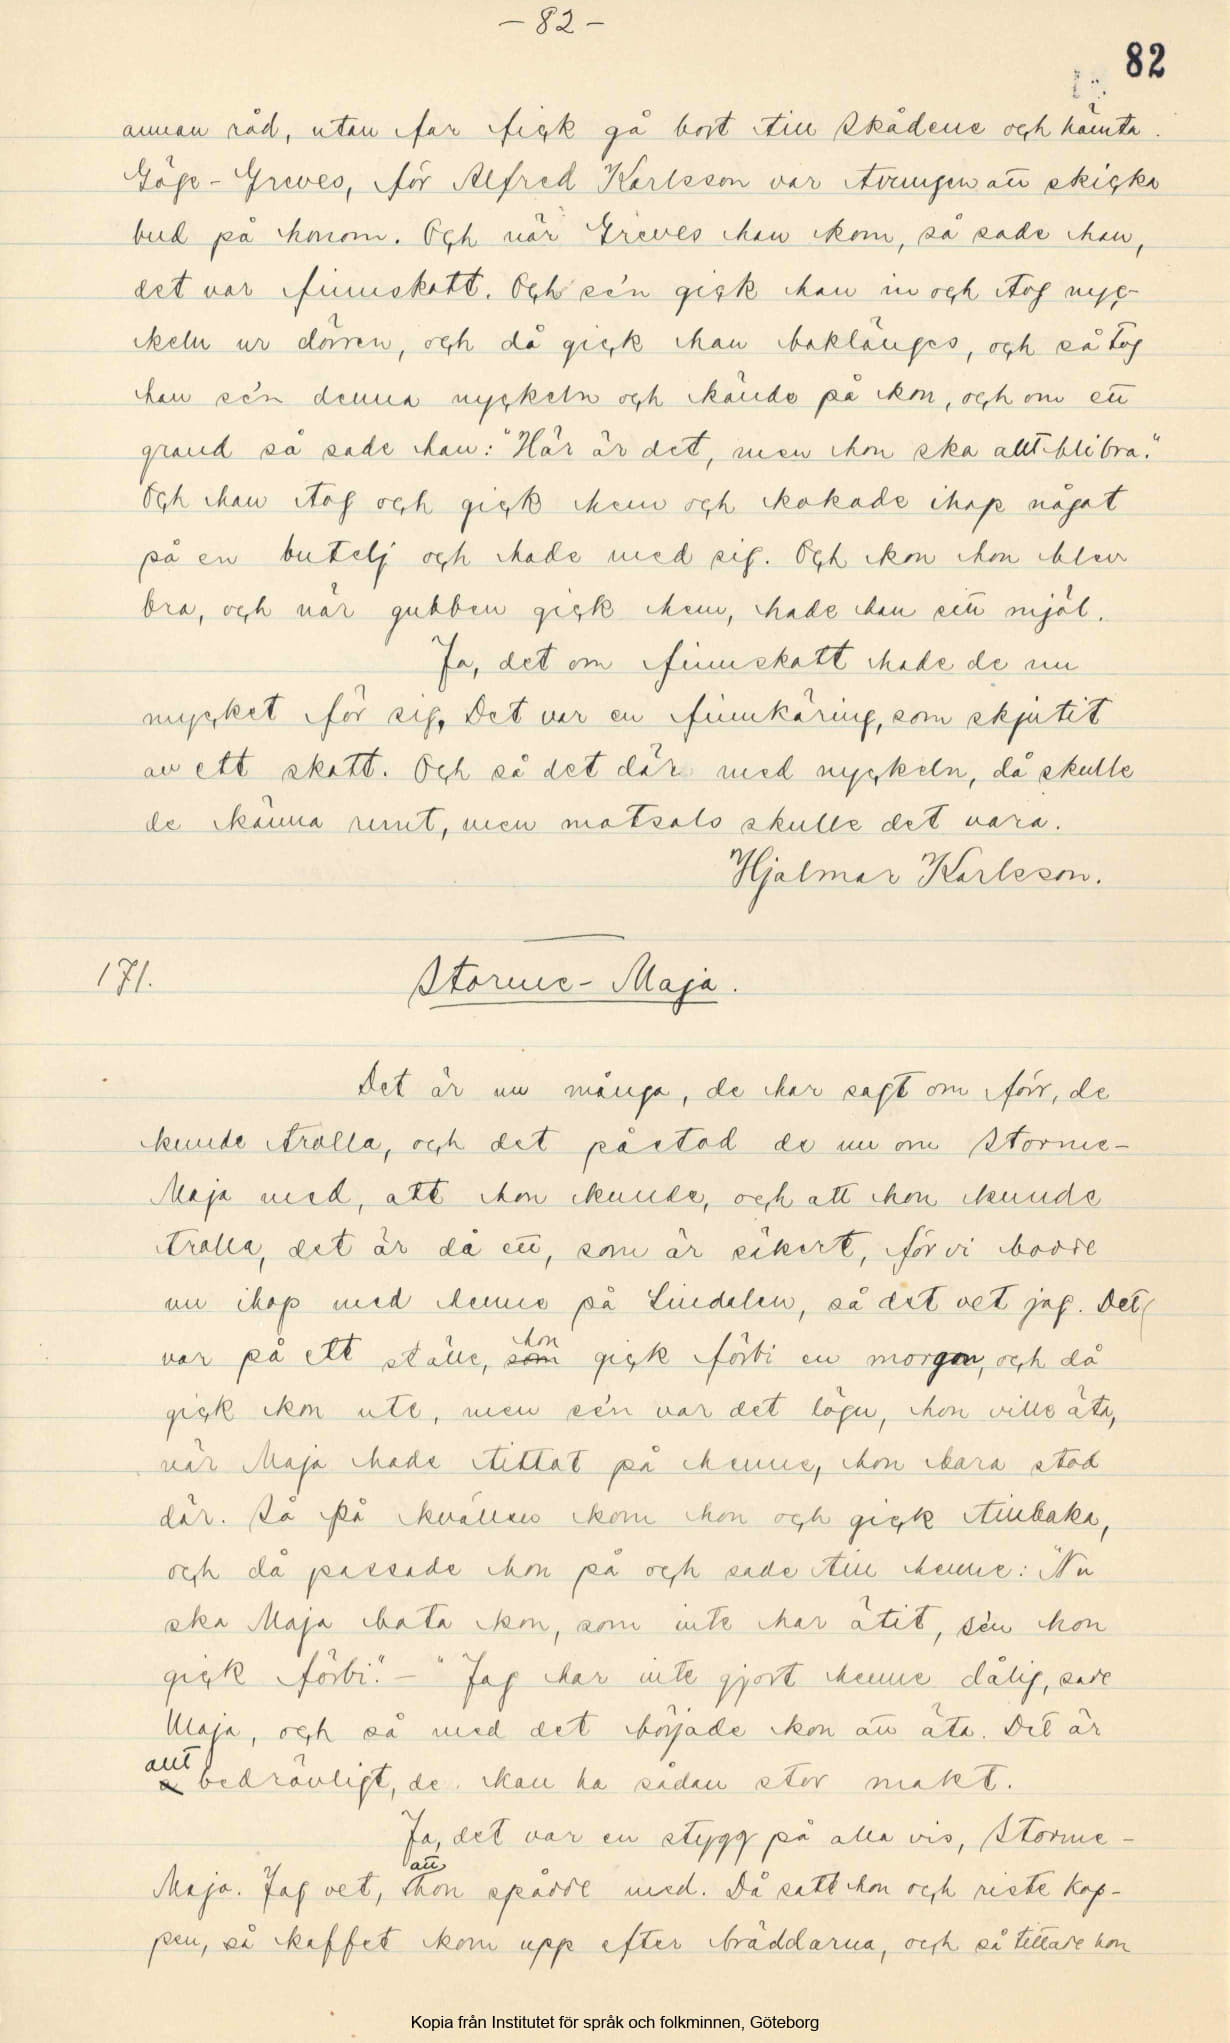 - 82 -
82
annan råd, utan far fick gå bort till Skådene och hämta
Göge-Greves, för Alfred Karlsson var tvungen att skicka
bud på honom. Och när Greves han kom, så sade han,
det var finnskott. Och se'n gick han in och tog nyc-
keln ur dörren, och då gick han baklänges, och så tog
han se'n denna nyckeln och kände på kon, och om ett
grand så sade han: "Här är det, men hon ska allt bli bra."
Och han tog och gick hem och kokade ihop något
på en butelj och hade med sig. Och kon hon blev
bra, och när gubben gick hem, hade han ett mjöl.
Ja, det om finnskott hade de nu
mycket för sig. Det var en finnkäring, som skjutit
av ett skott. Och så det där med nyckeln, då skulle
de känna runt, men motsols skulle det vara.
Hjalmar Karlsson.
171.
Storme-Maja.
Det är nu många, de har sagt om förr, de
kunde trolla, och det påstod de nu om Storme-
Maja med, att hon kunde, och att hon kunde
trolla, det är då ett, som är säkert, för vi bodde
nu ihop med henne på Lindalen, så det vet jag. Det
var på ett ställe, som hon gick förbi en morgon, och då
gick kon ute, men se'n var det lögn, hon ville äta,
när Maja hade tittat på henne, hon bara stod
där. Så på kvällen kom hon och gick tillbaka,
och då passade hon på och sade till henne: "Nu
ska Maja bota kon, som inte har ätit, se'n hon
gick förbi." - "Jag har inte gjort henne dålig, sade
Maja, och så med det började kon att äta. Det är
allt bedrövligt, de kan ha sådan stor makt.
Ja, det var en stygg på alla vis, Storme-
Maja. Jag vet, att hon spådde med. Då satt hon och riste kop-
pen, så kaffet kom upp efter bräddarna, och så tittade hon
Kopia från Institutet för språk och folkminnen, Göteborg